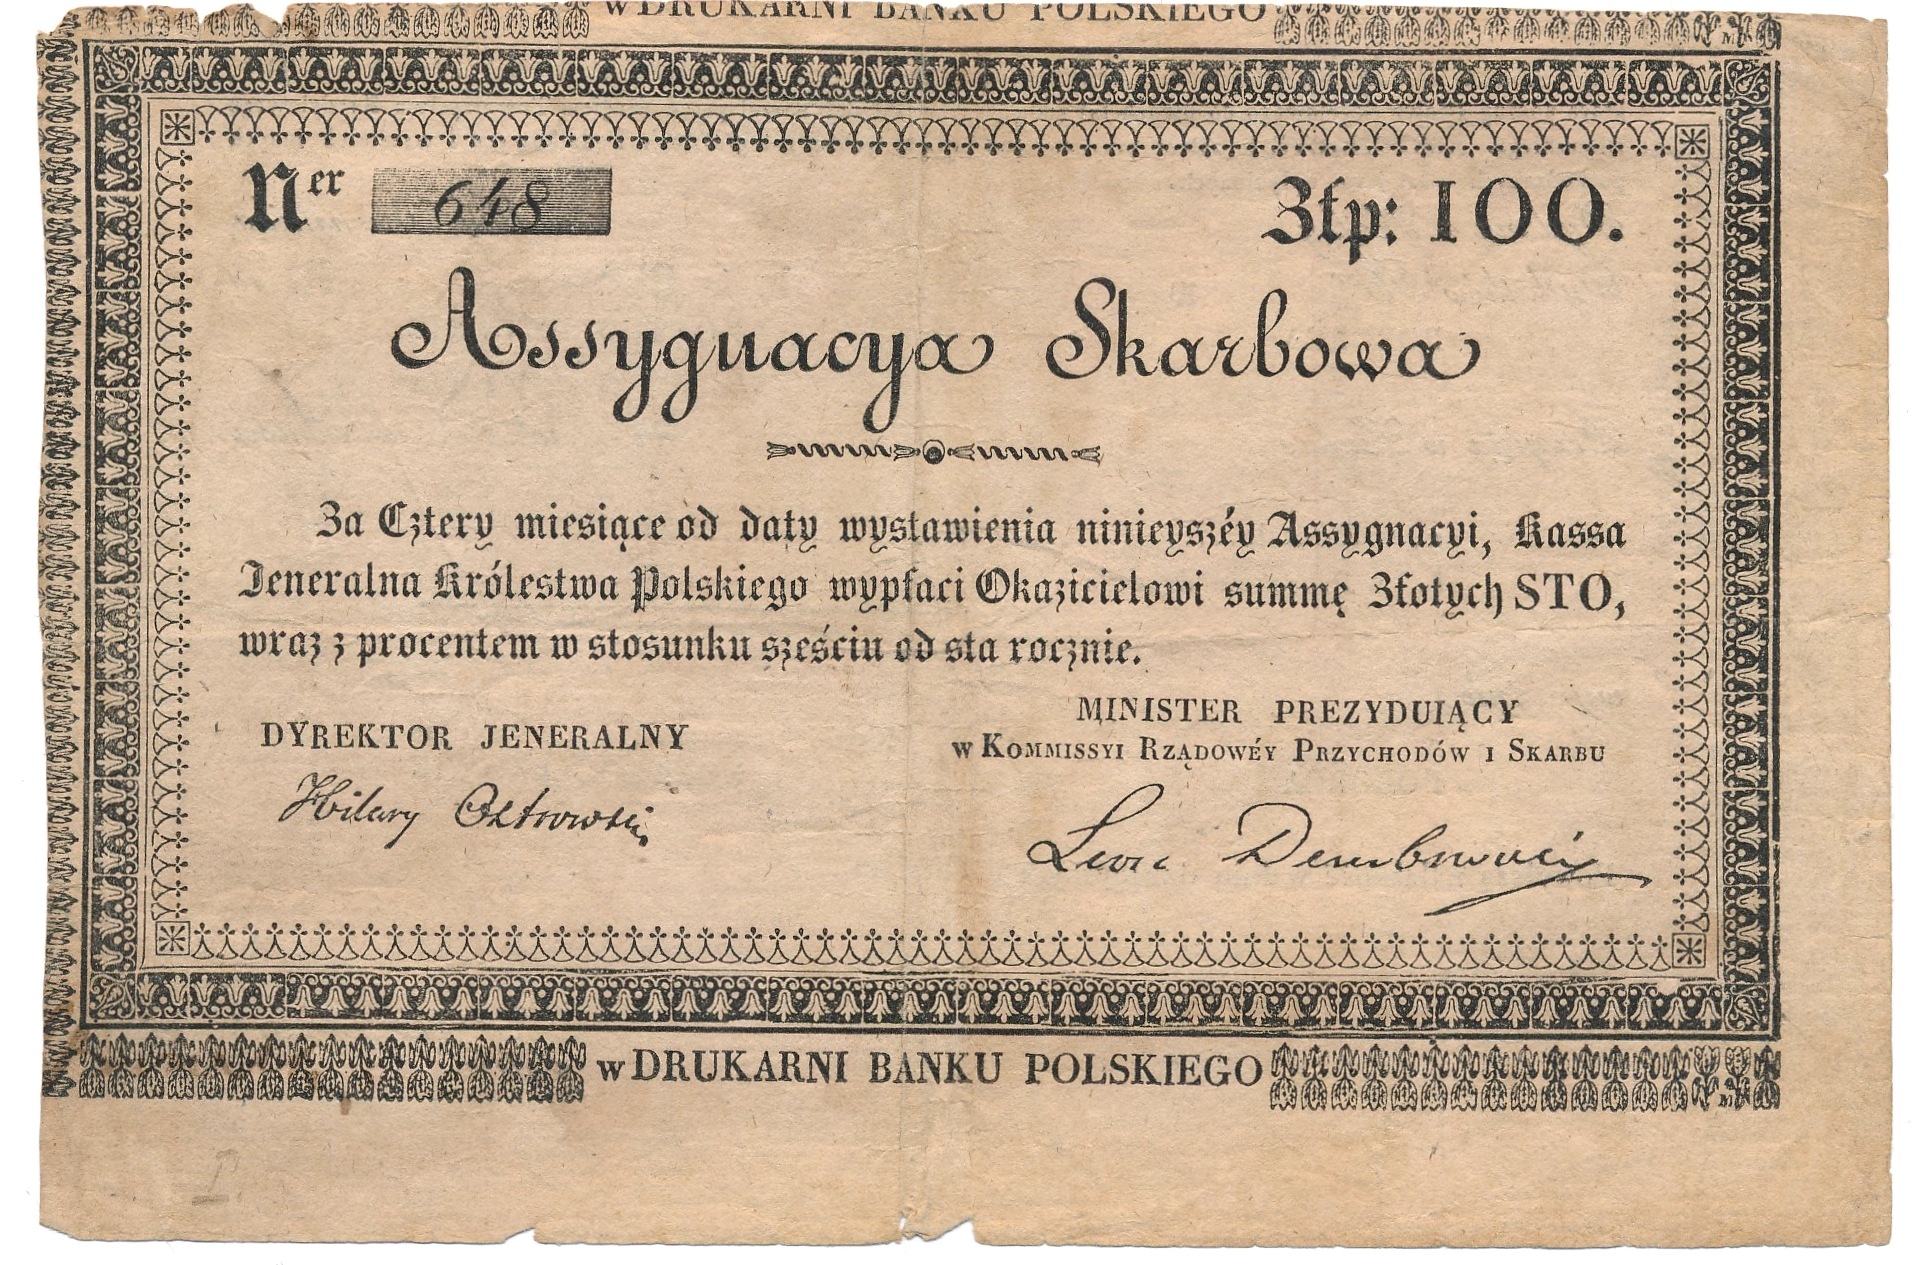 w DRUKARNI BANKU POLSKIEGO
Ner 648 Złp: 100.
Assygnacya Skarbowa
Za Cztery miesiące od daty wystawienia ninieyszéy Assygnacyi, Kassa
Jeneralna Królestwa Polskiego wypłaci Okazicielowi summę Złotych STO,
wraz z procentem w stosunku sześciu od sta rocznie.
DYREKTOR JENERALNY
MINISTER PREZYDUIĄCY
w KOMMISSYI RZĄDOWÉY PRZYCHODÓW I SKARBU
Hilary Ostrowski
Leon Dembowski
w DRUKARNI BANKU POLSKIEGO